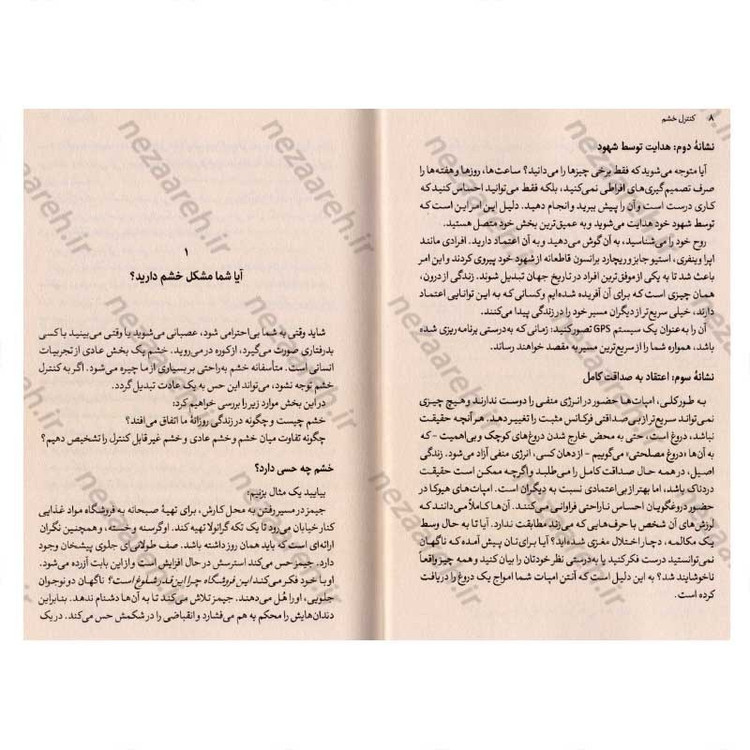 ۸ کنترل خشم
نشانهٔ دوم: هدایت توسط شهود
آیا متوجه می‌شوید که فقط برخی چیزها را می‌دانید؟ ساعت‌ها، روزها و هفته‌ها را
صرف تصمیم‌گیری‌های افراطی نمی‌کنید، بلکه فقط می‌توانید احساس کنید که
کاری درست است و آن را پیش ببرید و انجام دهید. دلیل این امر این است که
توسط شهود خود هدایت می‌شوید و به عمیق‌ترین بخش خود متصل هستید.
روح خود را می‌شناسید، به آن گوش می‌دهید و به آن اعتماد دارید. افرادی مانند
اپرا وینفری، استیو جابز و ریچارد برانسون قاطعانه از شهود خود پیروی کردند و این امر
باعث شد تا به یکی از موفق‌ترین افراد در تاریخ جهان تبدیل شوند. زندگی از درون،
همان چیزی است که برای آن آفریده شده‌ایم و کسانی که به این توانایی اعتماد
دارند، خیلی سریع‌تر از دیگران مسیر خود را در زندگی پیدا می‌کنند.
آن را به‌عنوان یک سیستم GPS تصور کنید: زمانی که به‌درستی برنامه‌ریزی شده
باشد، همواره شما را از سریع‌ترین مسیر به مقصد خواهند رساند.
نشانهٔ سوم: اعتقاد به صداقت کامل
به طورکلی، امپات‌ها حضور در انرژی منفی را دوست ندارند و هیچ چیزی
نمی‌تواند سریع‌تر از بی‌صداقتی فرکانس مثبت را تغییر دهد. هر آنچه حقیقت
نباشد، دروغ است، حتی به محض خارج شدن دروغ‌های کوچک و بی‌اهمیت -که
به آن‌ها «دروغ مصلحتی» می‌گوییم - از دهان کسی، انرژی منفی آزاد می‌شود. زندگی
اصیل، در همه حال صداقت کامل را می‌طلبد و اگرچه ممکن است حقیقت
دردناک باشد، اما بهتر از بی‌اعتمادی نسبت به دیگران است. امپات‌های هیوکا در
حضور دروغگویان احساس ناراحتی فراوانی می‌کنند. آن‌ها کاملاً می‌دانند که
لرزش‌های آن شخص با حرف‌هایی که می‌زند مطابقت ندارد. آیا تا به حال وسط
یک مکالمه، دچار اختلال مغزی شده‌اید؟ آیا برای‌تان پیش آمده که ناگهان
نمی‌توانستید درست فکر کنید یا به‌درستی نظر خودتان را بیان کنید و همه چیز واقعاً
ناخوشایند شد؟ به این دلیل است که آنتن امپات شما امواج یک دروغ را دریافت
کرده است.
۱
آیا شما مشکل خشم دارید؟
شاید وقتی به شما بی‌احترامی شود، عصبانی می‌شوید یا وقتی می‌بینید با کسی
بدرفتاری صورت می‌گیرد، از کوره در می‌روید. خشم یک بخش عادی از تجربیات
انسانی است. متأسفانه خشم به‌راحتی بر بسیاری از ما چیره می‌شود. اگر به کنترل
خشم توجه نشود، می‌تواند این حس به یک عادت تبدیل گردد.
در این بخش موارد زیر را بررسی خواهیم کرد:
خشم چیست و چگونه در زندگی روزانهٔ ما اتفاق می‌افتد؟
چگونه تفاوت میان خشم و خشم عادی و خشم غیر قابل کنترل را تشخیص دهیم؟
خشم چه حسی دارد؟
بیایید یک مثال بزنیم:
جیمز در مسیر رفتن به محل کارش، برای تهیهٔ صبحانه به فروشگاه مواد غذایی
کنار خیابان می‌رود تا یک تکه گرانولا تهیه کند. او گرسنه و خسته، و همچنین نگران
ارائه‌ای است که باید همان روز داشته باشد. صف طولانی‌ای جلوی پیشخان وجود
دارد. جیمز حس می‌کند استرسش در حال افزایش است و از این بابت آزرده می‌شود.
او با خود فکر می‌کند این فروشگاه، چرا این قدر شلوغ است؟ ناگهان دو نوجوان
جلویی، او را هُل می‌دهند. جیمز تلاش می‌کند تا به آن‌ها دشنام ندهد. بنابراین
دندان‌هایش را محکم به هم می‌فشارد و انقباضی را در شکمش حس می‌کند. در یک